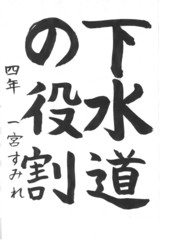 下水道
の役割
四年 一宮すみれ